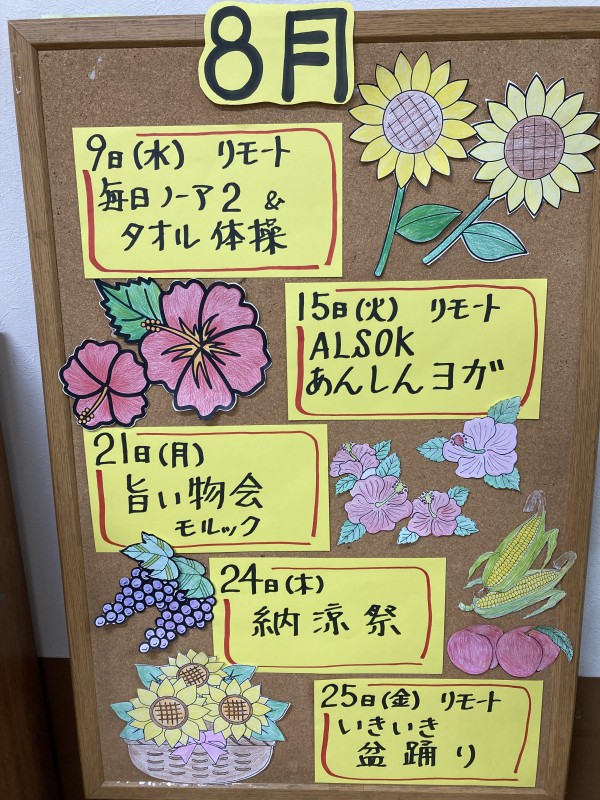 8月
9日(水) リモート
毎日ノーア2 &
タオル体操
15日(火) リモート
ALSOK
あんしんヨガ
21日(月)
旨い物会
モルック
24日(木)
納涼祭
25日(金) リモート
いきいき
盆踊り